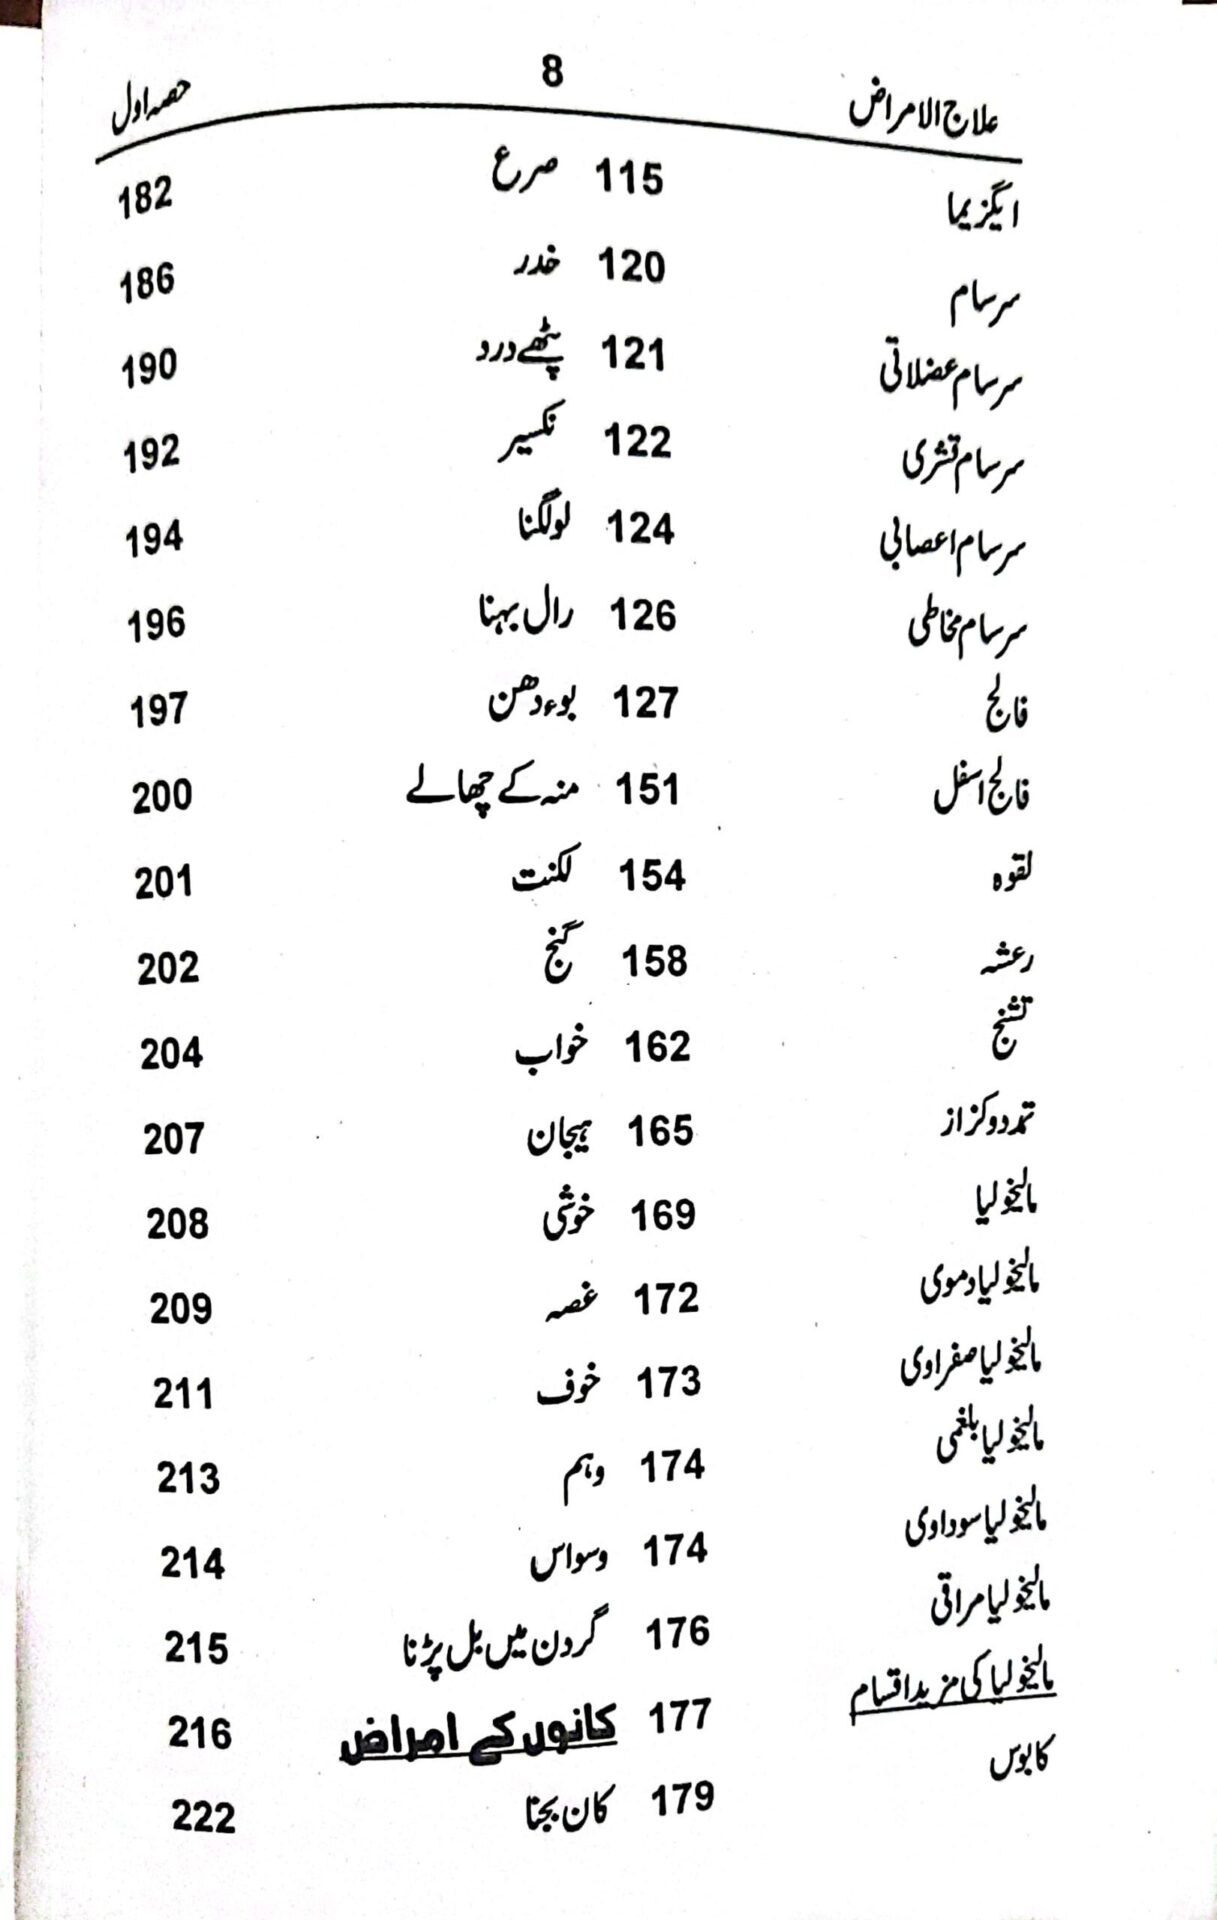 علاج الامراض 8 حصہ اول
ایگزیما 115 صرع 182
سرسام 120 خدر 186
سرسام عضلاتی 121 پٹھے درد 190
سرسام قشری 122 نکسیر 192
سرسام اعصابی 124 لو لگنا 194
سرسام مخاطی 126 رال بہنا 196
فالج 127 بوء دھن 197
فالج اسفل 151 منہ کے چھالے 200
لقوہ 154 لکنت 201
رعشہ 158 گنج 202
تشنج 162 خواب 204
تمدد و کزاز 165 ہیجان 207
مالیخولیا 169 خوشی 208
مالیخولیا دموی 172 غصہ 209
مالیخولیا صفراوی 173 خوف 211
مالیخولیا بلغمی 174 وہم 213
مالیخولیا سوداوی 174 وسواس 214
مالیخولیا مراقی 176 گردن میں بل پڑنا 215
مالیخولیا کی مزید اقسام 177 کانوں کے امراض 216
کابوس 179 کان بجنا 222